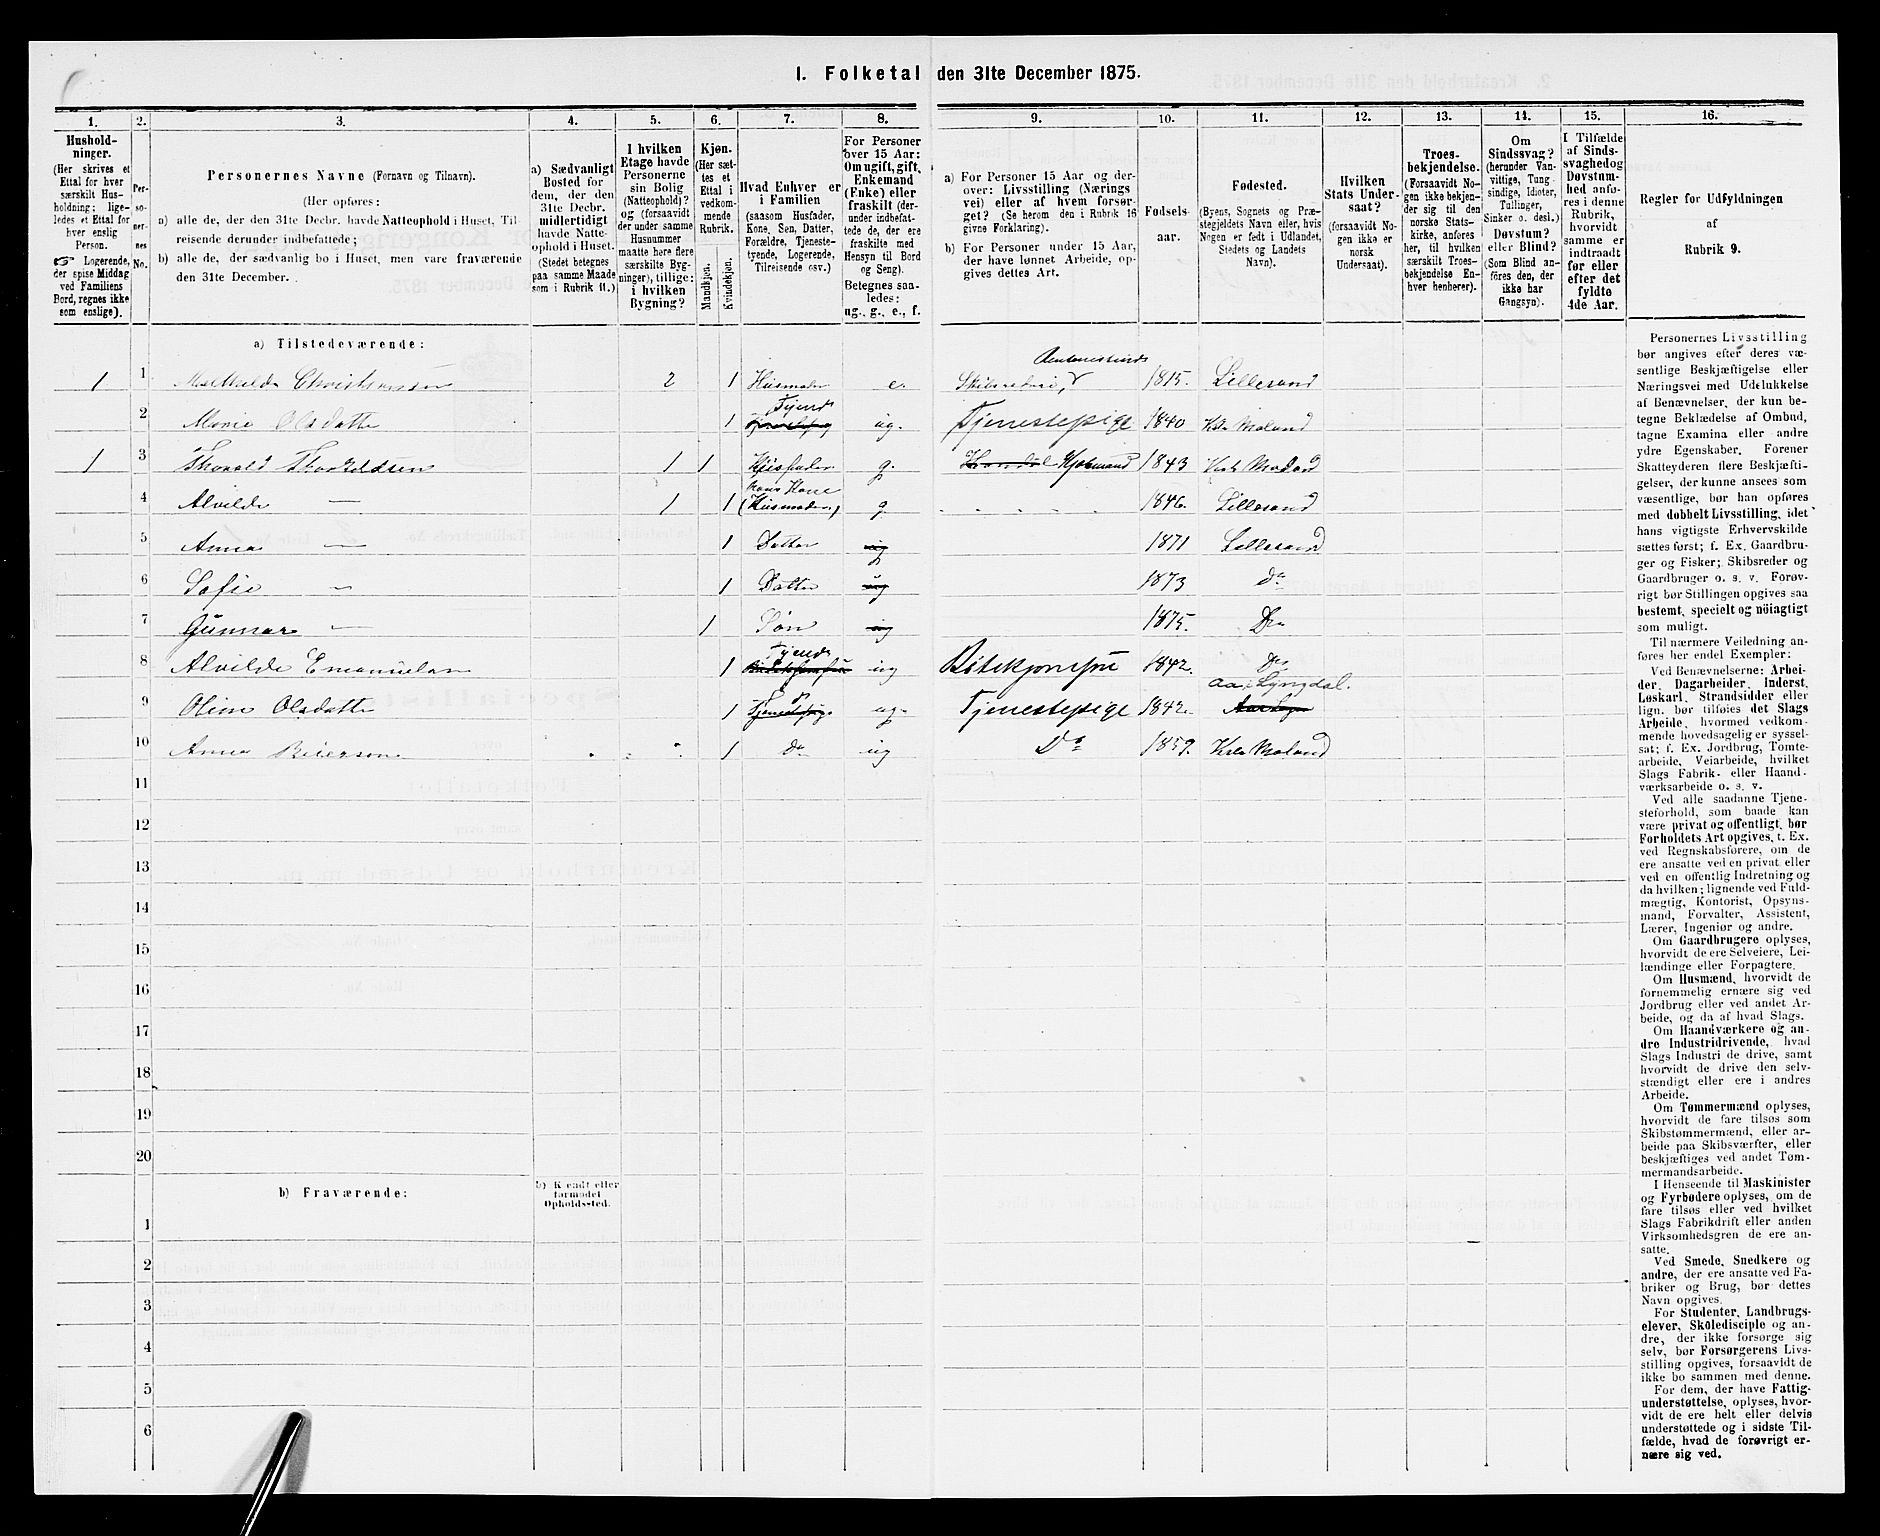 I. Folketal den 31te December 1875.
1.
Hushold-
ninger.
(Her skrives et
Ettal for hver
særskilt Hus-
holdning; lige-
ledes et Ettal for
hver enslig
Person.
☞ Logerende,
der spise Middag
ved Familiens
Bord, regnes ikke
som enslige).
2.
Per-
so-
ner-
nes
No.
3.
Personernes Navne (Fornavn og Tilnavn).
(Her opføres:
a) alle de, der den 31te Decbr. havde Natteophold i Huset, Til-
reisende derunder indbefattede;
b) alle de, der sædvanlig bo i Huset, men vare fraværende
den 31te December.
4.
a) Sædvanligt
Bosted for
dem, der den
31te Decbr.
midlertidigt
havde Natte-
ophold i Huset.
(Stedet betegnes
paa samme Maade
som i Rubrik 11.)
5.
I hvilken
Etage havde
Personerne
sin Bolig
(Natteophold)?
og (forsaavidt
der under samme
Husnummer
maatte høre flere
særskilte Byg-
ninger), tillige:
i hvilken
Bygning?
6.
Kjøn.
(Her sæt-
tes et
Ettal i
vedkom-
mende
Rubrik.
Mandkjøn.
Kvindekjøn.
7.
Hvad Enhver er
i Familien
(saasom Husfader,
Kone, Søn, Datter,
Forældre, Tjeneste-
tyende, Logerende,
Tilreisende osv.)
8.
For Personer
over 15 Aar:
Om ugift, gift,
Enkemand
(Enke) eller
fraskilt (der-
under indbefat-
tede de, der ere
fraskilte med
Hensyn til Bord
og Seng).
Betegnes saa-
ledes:
ug., g., e., f.
9.
a) For Personer 15 Aar og der-
over: Livsstilling (Nærings
vei) eller af hvem forsør-
get? (Se herom den i Rubrik 16
givne Forklaring).
b) For Personer under 15 Aar,
der have lønnet Arbeide, op-
gives dettes Art.
10.
Fødsels-
aar.
11.
Fødested.
(Byens, Sognets og Præ-
stegjeldets Navn eller, hvis
Nogen er født i Udlandet,
Stedets og Landets
Navn).
12.
Hvilken
Stats Under-
saat?
(forsaavidt No-
gen ikke er
norsk
Undersaat).
13.
Troes-
bekjendelse.
(Forsaavidt No-
gen ikke bekjen-
der sig til den
norske Stats-
kirke, anføres
her, til hvilken
særskilt Troes-
bekjendelse En-
hver henhører).
14.
Om
Sindssvag?
(herunder Van-
vittige, Tung-
sindige, Idioter,
Tullinger,
Sinker o. desl.)
Døvstum?
eller Blind?
(Som Blind an-
føres den, der
ikke har
Gangsyn).
15.
I Tilfælde
af Sinds-
svaghed og
Døvstum-
hed anfø-
res i denne
Rubrik,
hvorvidt
samme er
indtraadt
før eller
efter det
fyldte
4de Aar.
16.
Regler for Udfyldningen
af
Rubrik 9.
a) Tilstedeværende:
1 1 Mathilde Christensen 2 1 Husmoder e. 1815. Lillesand
2 Maria Olsdatter 1 Tjend ug. Tjenestepige 1840 Vestr Moland
1 3 Thorvald Thorkildsen 1 1 Husfader g. Handel Kjøbmand 1843 Vestr Moland
4 Alvilde — 1 1 hans Kone (Husmoder) g. 1846. Lillesand
5 Anna — 1 Datter ug 1871 Lillesand
6 Sofie — 1 Datter ug 1873 do
7 Gunnar — 1 Søn ug 1875. Do
8 Alvilde 1 Tjende ug 1842. Do
9 Oline Olsdatter 1 ug. Tjenestepige 1842. Lyngdal.
10 Anna 1 do ug Do 1859. Vestr Moland
11
12
13
14
15
16
17
18
19
20
b) Fraværende:
b) Kjendt eller
formodet
Opholdssted.
1
2
3
4
5
6
Personernes Livsstilling
bør angives efter deres væ-
sentlige Beskjæftigelse eller
Næringsvei med Udelukkelse
af Benævnelser, der kun be-
tegne Beklædelse af Ombud,
tagne Examina eller andre
ydre Egenskaber. Forener
Skatteyderen flere Beskjæfti-
gelser, der kunne ansees som
væsentlige, bør han opføres
med dobbelt Livsstilling, idet
hans vigtigste Erhvervskilde
sættes først; f. Ex. Gaardbru-
ger og Fisker; Skibsreder og
Gaardbruger o. s. v. Forøv-
rigt bør Stillingen opgives saa
bestemt, specielt og nöiagtigt
som muligt.
Til nærmere Veiledning an-
føres her endel Exempler:
Ved Benævnelserne: Arbei-
der, Dagarbeider, Inderst,
Løskarl, Strandsidder eller
lign. bør tilføies det Slags
Arbeide, hvormed vedkom-
mende hovedsagelig er syssel-
sat; f. Ex. Jordbrug, Tomte-
arbeide, Veiarbeide, hvilket
Slags Fabrik- eller Haand-
værksarbeide o. s. v.
Ved alle saadanne Tjene-
steforhold, som baade kan
være privat og offentligt, bør
Forholdets Art opgives, t. Ex.
ved Regnskabsførere, om de
ere ansatte ved en privat eller
ved en offentlig Indretning og
da hvilken; lignende ved Fuld-
mægtig, Kontorist, Opsyns-
mand, Forvalter, Assistent,
Lærer, Ingeniør og andre.
Om Gaardbrugere oplyses,
hvorvidt de ere Selveiere, Lei-
lændinge eller Forpagtere.
Om Husmænd, hvorvidt de
fornemmelig ernære sig ved
Jordbrug eller ved andet Ar-
beide, og da af hvad Slags.
Om Haandværkere og an-
dre Industridrivende, hvad
Slags Industri de drive, samt
hvorvidt de drive den selv-
stændigt eller ere i andres
Arbeide.
Om Tømmermænd oplyses,
hvorvidt de fare tilsøs som
Skibstømmermænd, eller ar-
beide paa Skibsværfter, eller
beskjæftiges ved andet Tøm-
mermandsarbeide.
I Henseende til Maskinister
og Fyrbødere oplyses, om de
fare tilsøs eller ved hvilket
Slags Fabrikdrift eller anden
Virksomhedsgren de ere an-
satte.
Ved Smede, Snedkere og
andre, der ere ansatte ved Fa-
briker og Brug, bør dettes
Navn opgives.
For Studenter, Landbrugs-
elever, Skoledisciple og an-
dre, der ikke forsørge sig
selv, bør Forsørgerens Livs-
stilling opgives, forsaavidt de
ikke bo sammen med denne.
For dem, der have Fattig-
understøttelse, oplyses, hvor-
vidt de ere helt eller delvis
understøttede og i sidste Til-
fælde, hvad de forøvrigt er-
nære sig ved.